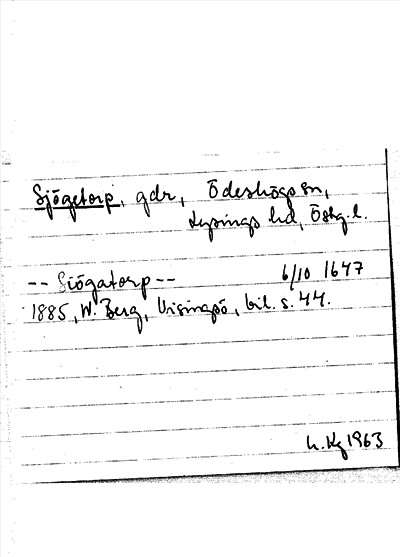 Sjögetorp, gdr, Ödeshögs sn,
Lysings hd, Östg. l.
-- Siögatorp -- 6/10 1647
1885, W. Berg, Visingsö, bil. s. 44.
h. Kg 1963